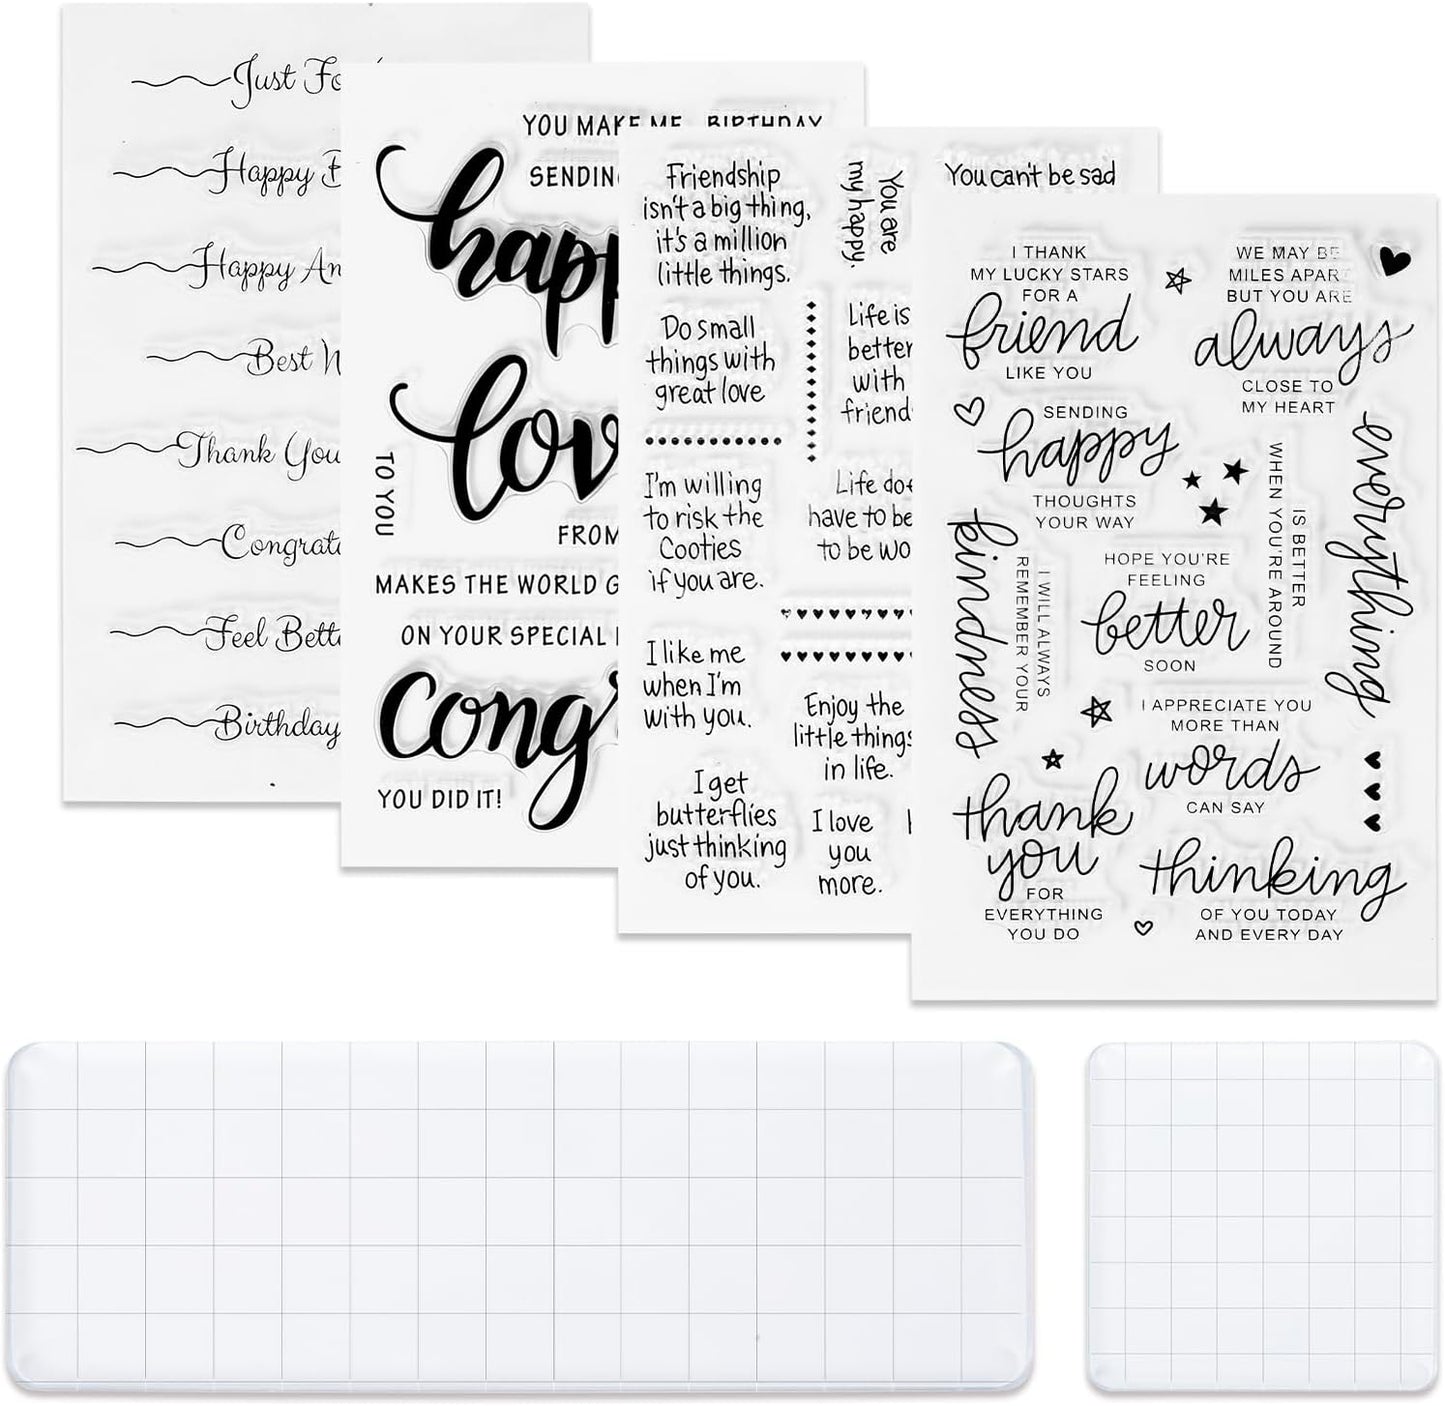 Just
Happy
Happy
Best
Thank You
Feel
Birthday
YOU MAKE ME BIRTHDAY
SENDING
TO YOU
FROM
MAKES THE WORLD
ON YOUR SPECIAL
YOU DID IT!
Friendship
isn't a big thing,
it's a million
little things.
Do small
things with
great love
I'm willing
to risk the
Cooties
if you are.
I like me
when I'm
with you.
I get
butterflies
just thinking
of you.
You are
my happy.
Life is
better
with
Life
have to be
to be
Enjoy the
little things
in life.
I love
you
more.
You can't be sad
I THANK
MY LUCKY STARS
FOR A
friend
LIKE YOU
WE MAY BE
MILES APART
BUT YOU ARE
always
CLOSE TO
MY HEART
SENDING
happy
THOUGHTS
YOUR WAY
everything
IS BETTER
WHEN YOU'RE AROUND
kindness
I WILL ALWAYS
REMEMBER YOUR
HOPE YOU'RE
FEELING
better
SOON
I APPRECIATE YOU
MORE THAN
words
CAN SAY
thank
you
FOR
EVERYTHING
YOU DO
thinking
OF YOU TODAY
AND EVERY DAY